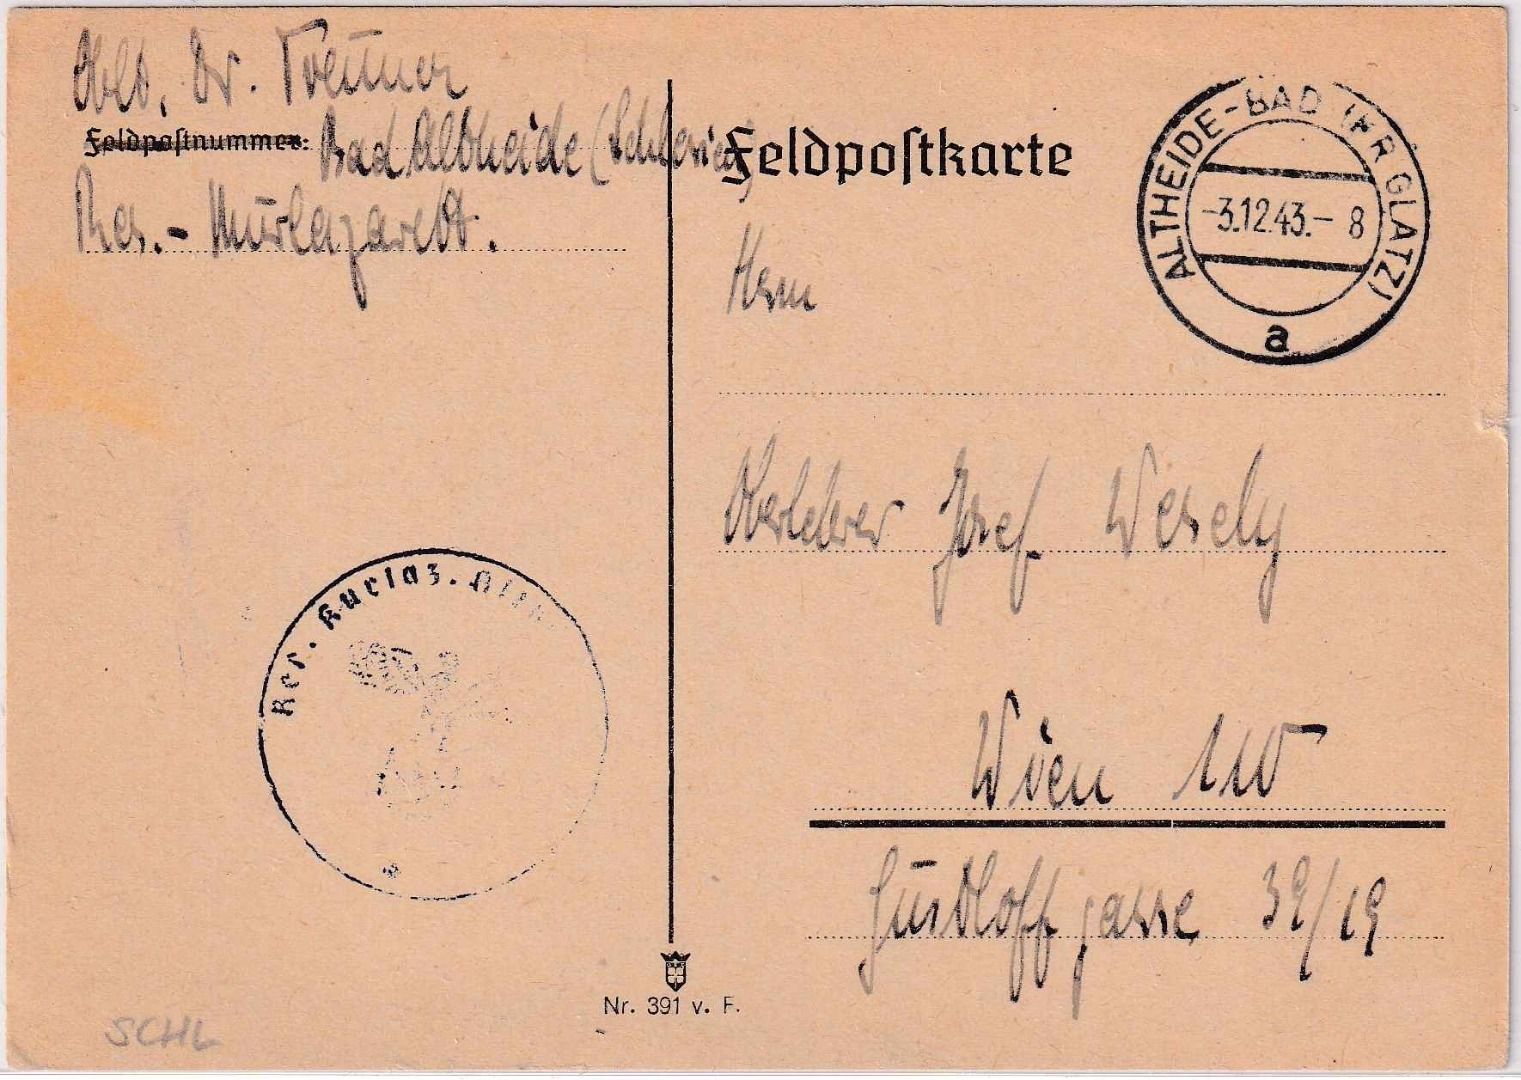 Oblt. Dr. Treitner
Feldpostnummer: Bad Altheide (Schlesien)
Res. - Kurlazarett.
Feldpostkarte
ALTHEIDE-BAD (KR GLATZ)
-3.12.43.- 8
a
Herrn
Oberlehrer Josef Wesely
Wien 110
Gustloffgasse 39/19
Res. Kurlaz. Alth
Nr. 391 v. F.
SCHL